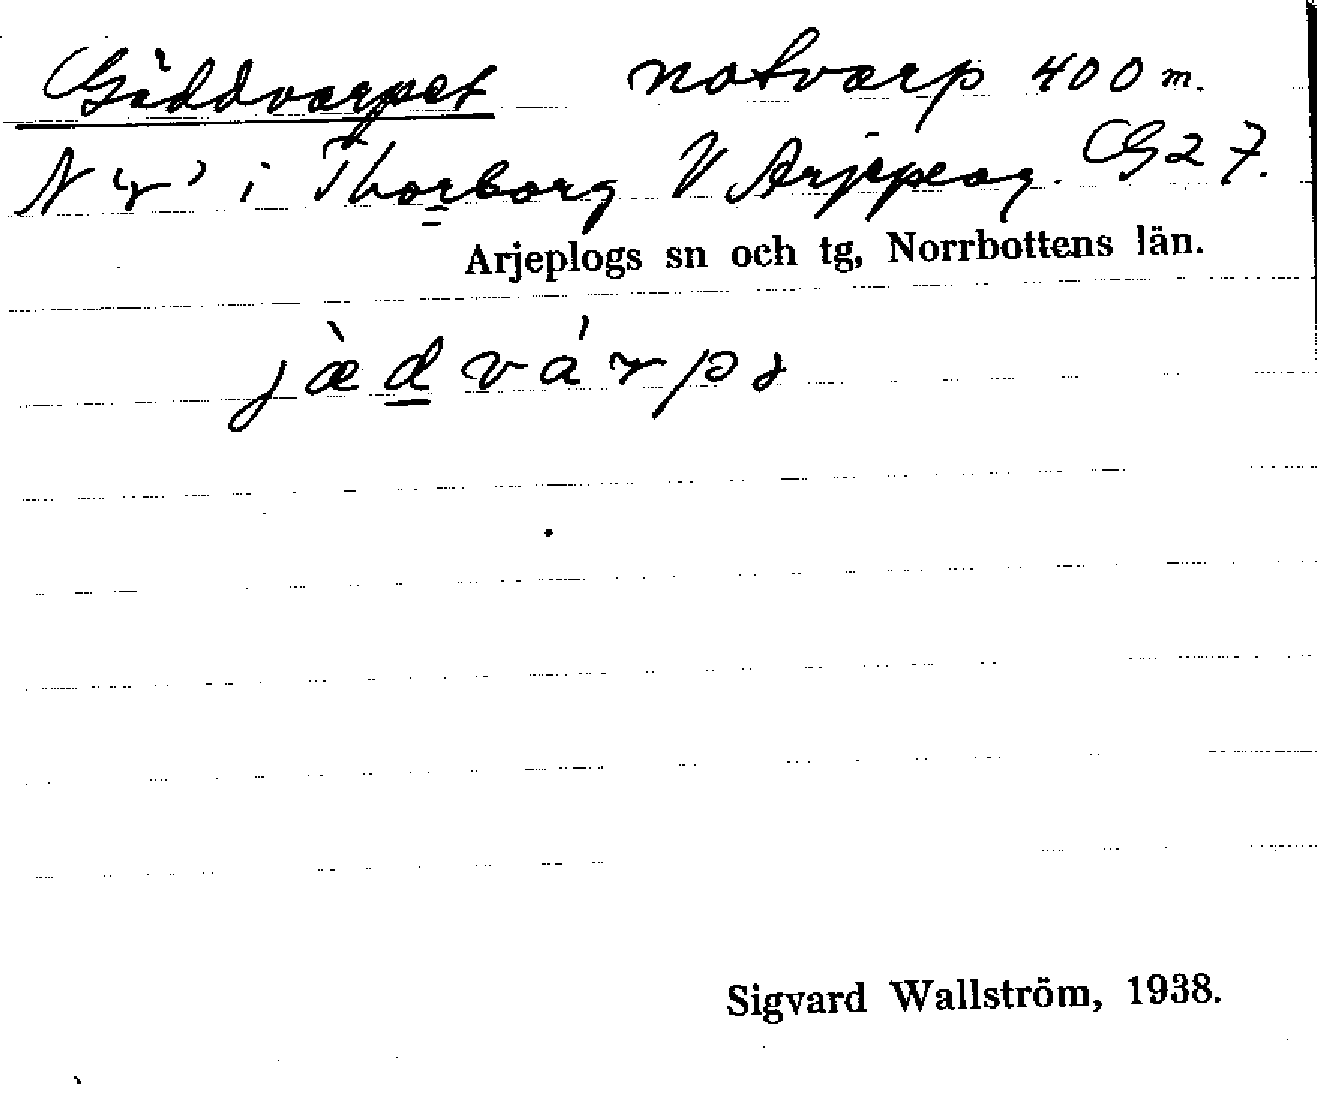 Gäddvarpet notvarp 400 m.
N "r" i Thorborg V Arjeplog. G27.
Arjeplogs sn och tg, Norrbottens län.
jæ̀d̲várpə
Sigvard Wallström, 1938.